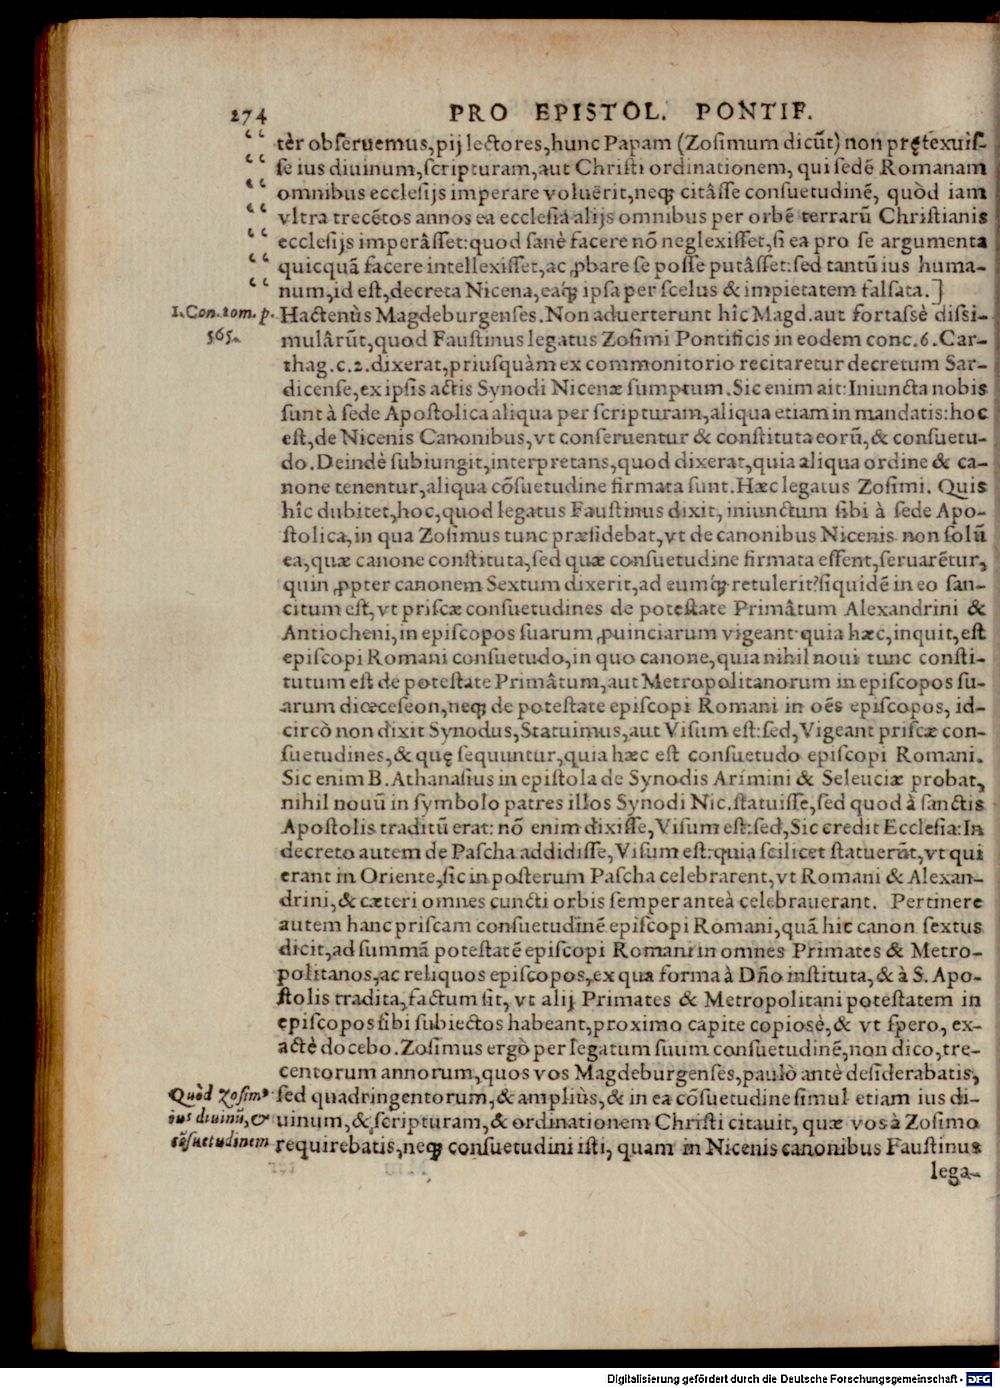 274 PRO EPISTOL. PONTIF.
“ tèr obſeruemus, pij lectores, hunc Papam (Zoſimum dicūt) non prętexuiſ-
“ ſe ius diuinum, ſcripturam, aut Chriſti ordinationem, qui ſedē Romanam
“ omnibus eccleſijs imperare voluērit, neq; citâſſe conſuetudinē, quòd iam
“ vltra trecētos annos ea eccleſia alijs omnibus per orbē terrarū Chriſtianis
“ eccleſijs imperâſſet: quod ſanè facere nō neglexiſſet, ſi ea pro ſe argumenta
“ quicquā facere intellexiſſet, ac ꝓbare ſe poſſe putâſſet: ſed tantū ius huma-
“ num, id eſt, decreta Nicena, eaq; ipſa per ſcelus & impietatem falſata.]
1. Con. tom. p.
565.
Hactenùs Magdeburgenſes. Non aduerterunt hîc Magd. aut fortaſsè diſsi-
mulârūt, quod Fauſtinus legatus Zoſimi Pontificis in eodem conc. 6. Car-
thag. c. 2. dixerat, priuſquàm ex commonitorio recitaretur decretum Sar-
dicenſe, ex ipſis actis Synodi Nicenæ ſumptum. Sic enim ait: Iniuncta nobis
ſunt à ſede Apoſtolica aliqua per ſcripturam, aliqua etiam in mandatis: hoc
eſt, de Nicenis Canonibus, vt conſeruentur & conſtituta eorū, & conſuetu-
do. Deindè ſubiungit, interpretans, quod dixerat, quia aliqua ordine & ca-
none tenentur, aliqua cōſuetudine firmata ſunt. Hæc legatus Zoſimi. Quis
hîc dubitet, hoc, quod legatus Fauſtinus dixit, iniunctum ſibi à ſede Apo-
ſtolica, in qua Zoſimus tunc præſidebat, vt de canonibus Nicenis non ſolū
ea, quæ canone conſtituta, ſed quæ conſuetudine firmata eſſent, ſeruarētur,
quin ꝓpter canonem Sextum dixerit, ad eumq; retulerit? ſiquidē in eo ſan-
citum eſt, vt priſcæ conſuetudines de poteſtate Primâtum Alexandrini &
Antiocheni, in epiſcopos ſuarum ꝓuinciarum vigeant: quia hæc, inquit, eſt
epiſcopi Romani conſuetudo, in quo canone, quia nihil noui tunc conſti-
tutum eſt de poteſtate Primâtum, aut Metropolitanorum in epiſcopos ſu-
arum diœceſeon, neq; de poteſtate epiſcopi Romani in oēs epiſcopos, id-
circò non dixit Synodus, Statuimus, aut Viſum eſt: ſed, Vigeant priſcæ con-
ſuetudines, & quę ſequuntur, quia hæc eſt conſuetudo epiſcopi Romani.
Sic enim B. Athanaſius in epiſtola de Synodis Arimini & Seleuciæ probat,
nihil nouū in ſymbolo patres illos Synodi Nic. ſtatuiſſe, ſed quod à ſanctis
Apoſtolis traditū erat: nō enim dixiſſe, Viſum eſt: ſed, Sic credit Eccleſia: In
decreto autem de Paſcha addidiſſe, Viſum eſt: quia ſcilicet ſtatuerūt, vt qui
erant in Oriente, ſic in poſterum Paſcha celebrarent, vt Romani & Alexan-
drini, & cæteri omnes cuncti orbis ſemper anteà celebrauerant. Pertinere
autem hanc priſcam conſuetudinē epiſcopi Romani, quā hic canon ſextus
dicit, ad ſummā poteſtatē epiſcopi Romani in omnes Primates & Metro-
politanos, ac reliquos epiſcopos, ex qua forma à Dño inſtituta, & à S. Apo-
ſtolis tradita, factum ſit, vt alij Primates & Metropolitani poteſtatem in
epiſcopos ſibi ſubiectos habeant, proximo capite copiosè, & vt ſpero, ex-
actè docebo. Zoſimus ergò per legatum ſuum conſuetudinē, non dico, tre-
centorum annorum, quos vos Magdeburgenſes, paulò antè deſiderabatis,
Quòd Zoſim⁹
ius diuinū, &
cōſuetudinem
ſed quadringentorum, & ampliùs, & in ea cōſuetudine ſimul etiam ius di-
uinum, & ſcripturam, & ordinationem Chriſti citauit, quæ vos à Zoſimo
requirebatis, neq; conſuetudini iſti, quam in Nicenis canonibus Fauſtinus
lega-
Digitalisierung gefördert durch die Deutsche Forschungsgemeinschaft - DFG